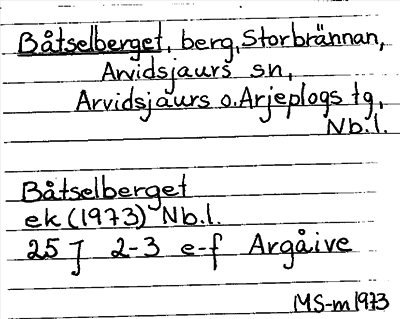 Båtselberget, berg, Storbrännan,
Arvidsjaurs sn,
Arvidsjaurs o. Arjeplogs tg,
Nb.l.
Båtselberget
ek (1973) Nb.l.
25 J 2-3 e-f Argåive
MS-m 1973